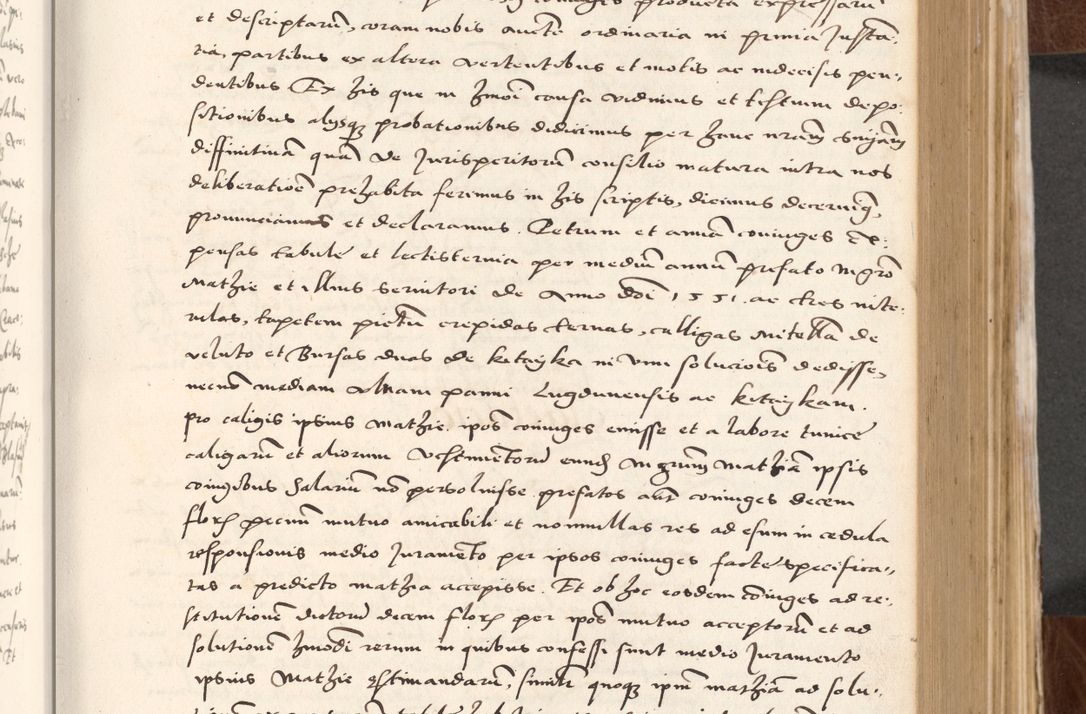 coniuges producta expressarum
et descriptarũ, coram nobis aucte ordinaria in prima Justã,
tia, partibus ex altera vertentibus et motis ac indecisis pen,
dentibus Ex his que in hmõi causa vidimus et testium depo,
sitionibus alysq probationibus didicimus per hanc nrãm sniam
diffinitivã quã de Jurisperitorũ consilio matura intra nos
deliberatioẽ prehabita ferimus in his scriptis, dicimus decernimq,
pronunciamus et declaramus. Petrum et annã coniuges Ex,
pensas tabule et lectisternia per mediũ annũ prefato Mgrõ
Mathie et illius servitori de Anno dõi 1551. ac tres mite,
rulas, tapetem pictũ crepidas ternas, calligas Mitellã de
veluto et Bursas duas de kitayka in vim solucioĩs dedisse,
necnõ mediam ulnam panni Lugdunensis ac kitaykam
pro caligis ipsius Mathie ipõs coniuges emisse et a labore tunice
caligarũ et aliorum vestimẽtorũ eundẽ Mgrum Mathiã ipsis
coniugibus salariũ nõ persolvisse. prefatos autẽ coniuges decem
florẽ pecuniẽ mutuo amicabili et nonnullas res ad esum in cedula
responsionis medio Juramẽto per ipsos coniuges facte specifica,
tas a predicto Mathia accepisse. Et ob hoc eosdem cõiuges ad re,
stitutionẽ dictorũ decem florẽ per ipõs mutuo acceptorũ et ad
solutionẽ hmõdi rerum in quibus confessi sunt medio Juramento
ipsius Mathie estimandarũ, similr quoqz ipm̃ mathiã ad solu,